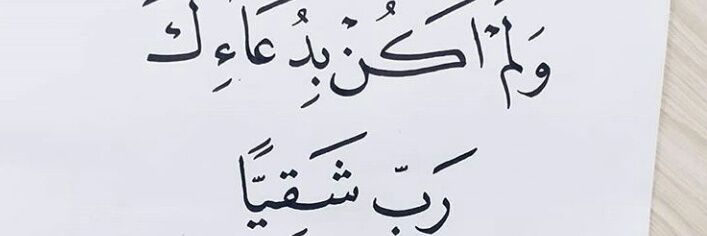 وَلَمْ اَكُنْ بِدُعَاءِكَ
رَبِّ شَقِيًّا